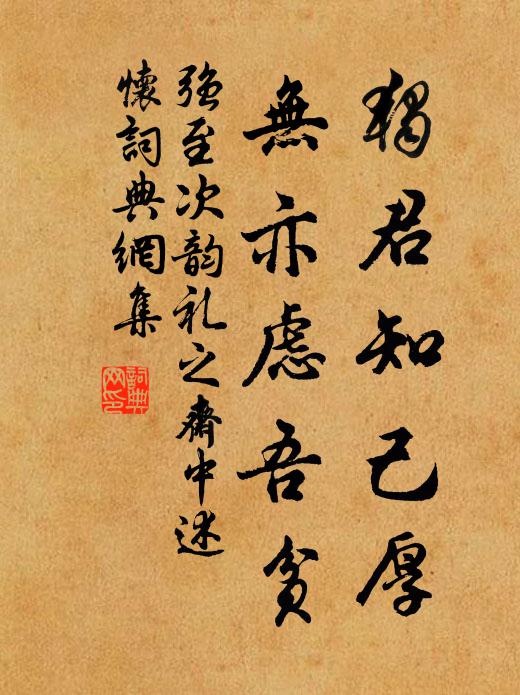 獨君知己厚
無亦慮吾貧
强至次韵礼之齋中述
懷詞典網集
詞典
网印